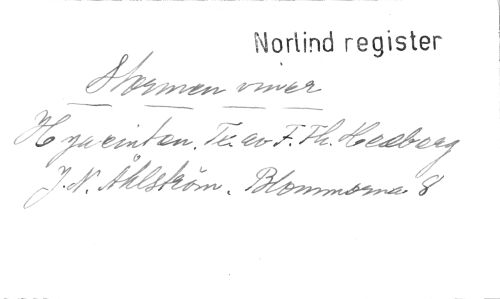 Norlind register
Stormen viner
Hyacinten. Tx. av F. Th. Hedberg
J. N. Åhlström. Blommorna 8